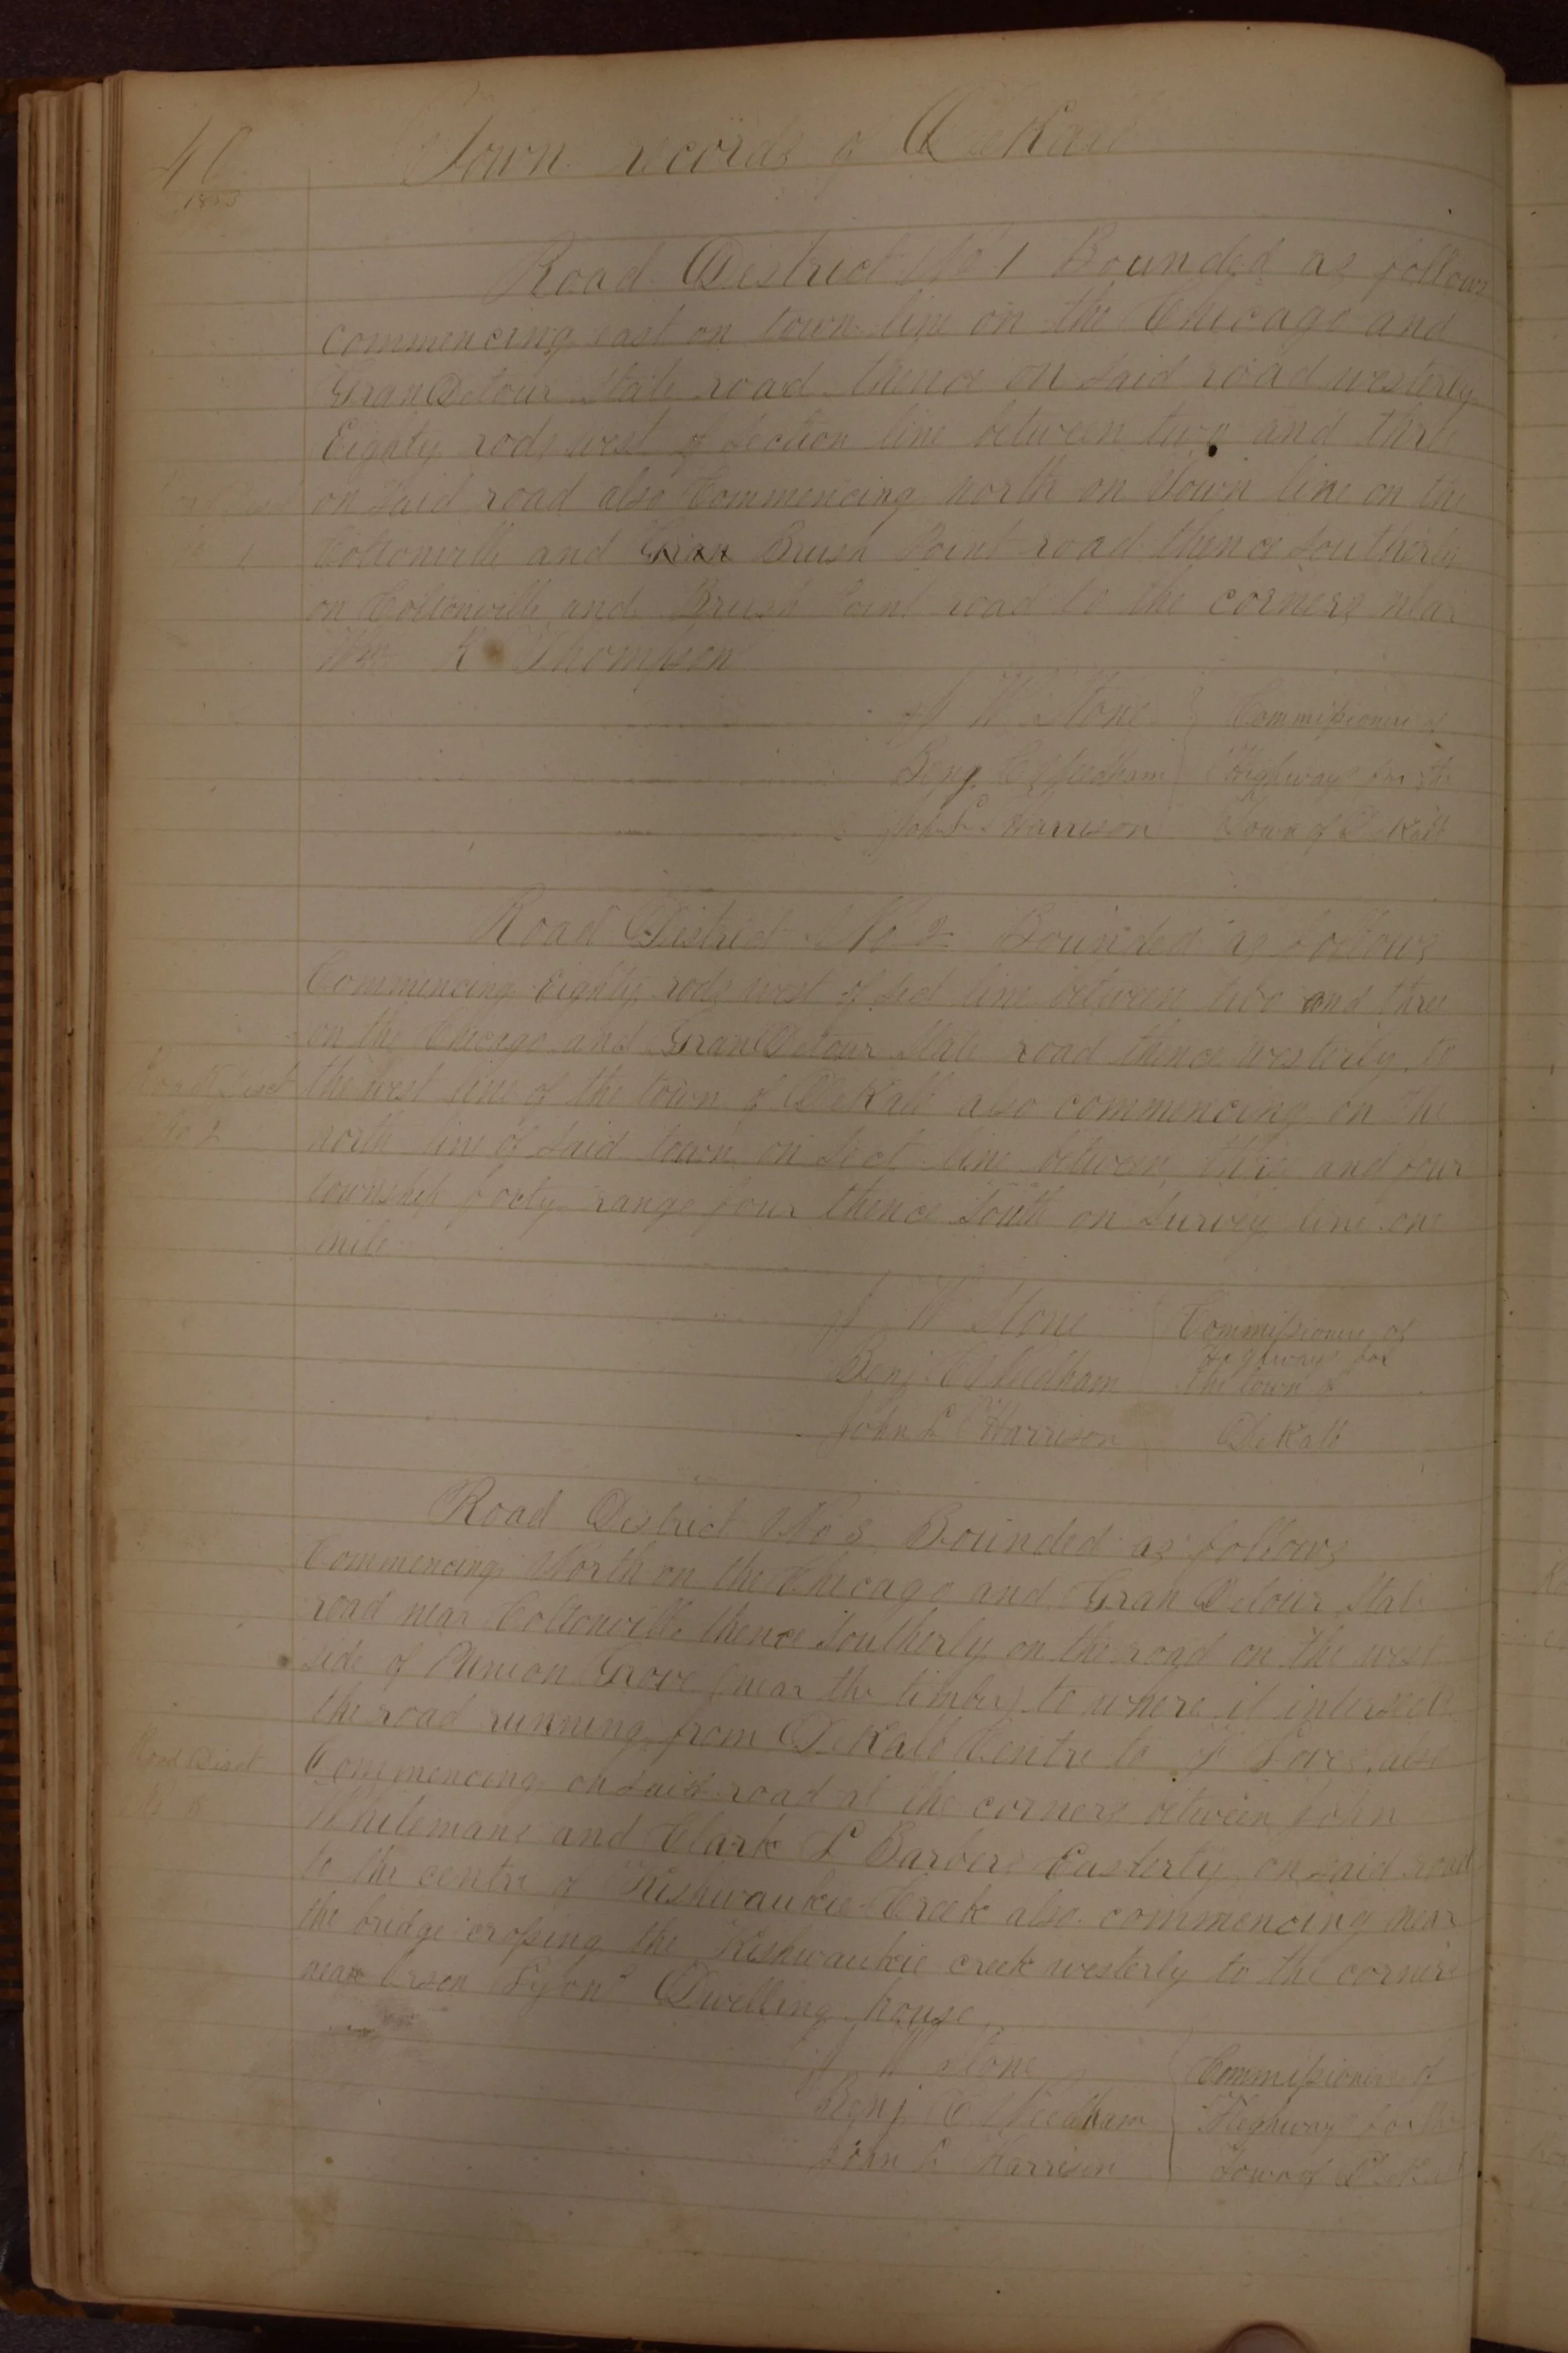 40
1853
Town records of DeKalb
Road District No 1 Bounded as follows
commencing east on town line on the Chicago and
Gran Detour State road thence on said road westerly
Eighty rods west of Section line between two and three
on said road also Commencing north on Town line on the
Road Dist
No 1
Coltonville and Gran Brush Point road thence Southerly
on Coltonville and Brush Point road to the corners near
Wm K Thompson
J W Stone Commissioners of
Benj C Needham Highways for the
John L Harrison Town of DeKalb
Road District No 2 Bounded as follows
Commencing Eighty rods west of Sect line between two and three
on the Chicago and Gran Detour State road thence westerly to
Road Dist
No 2
the west line of the town of DeKalb also commencing on the
north line of said town on Sect line between three and four
township forty range four thence South on Survey line one
mile
J W Stone Commissioners of
Highways for
Benj C Needham the town of
John L Harrison DeKalb
Road District No 8 Bounded as follows
Commencing North on the Chicago and Gran Detour State
road near Coltonville thence Southerly on the road on the west
side of Union Grove (near the timber) to where it intersects
the road running from DeKalb Centre to also
Road Dist
No 8
Commencing on said road at the corners between John
Whitemans and Clark L Barbers Easterly on said road
to the centre of Kishwaukie Creek also commencing near
the bridge crossing the Kishwaukie creek westerly to the corners
near Orson Lyons Dwelling house
J W Stone Commissioners of
Benj C Needham Highways for the
John L Harrison Town of DeKalb